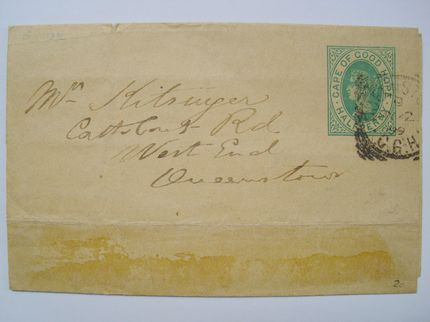 CAPE OF GOOD HOPE
HALF PENNY
Mr Kilsinger
Rd
West End
Queenstown
C.G.H